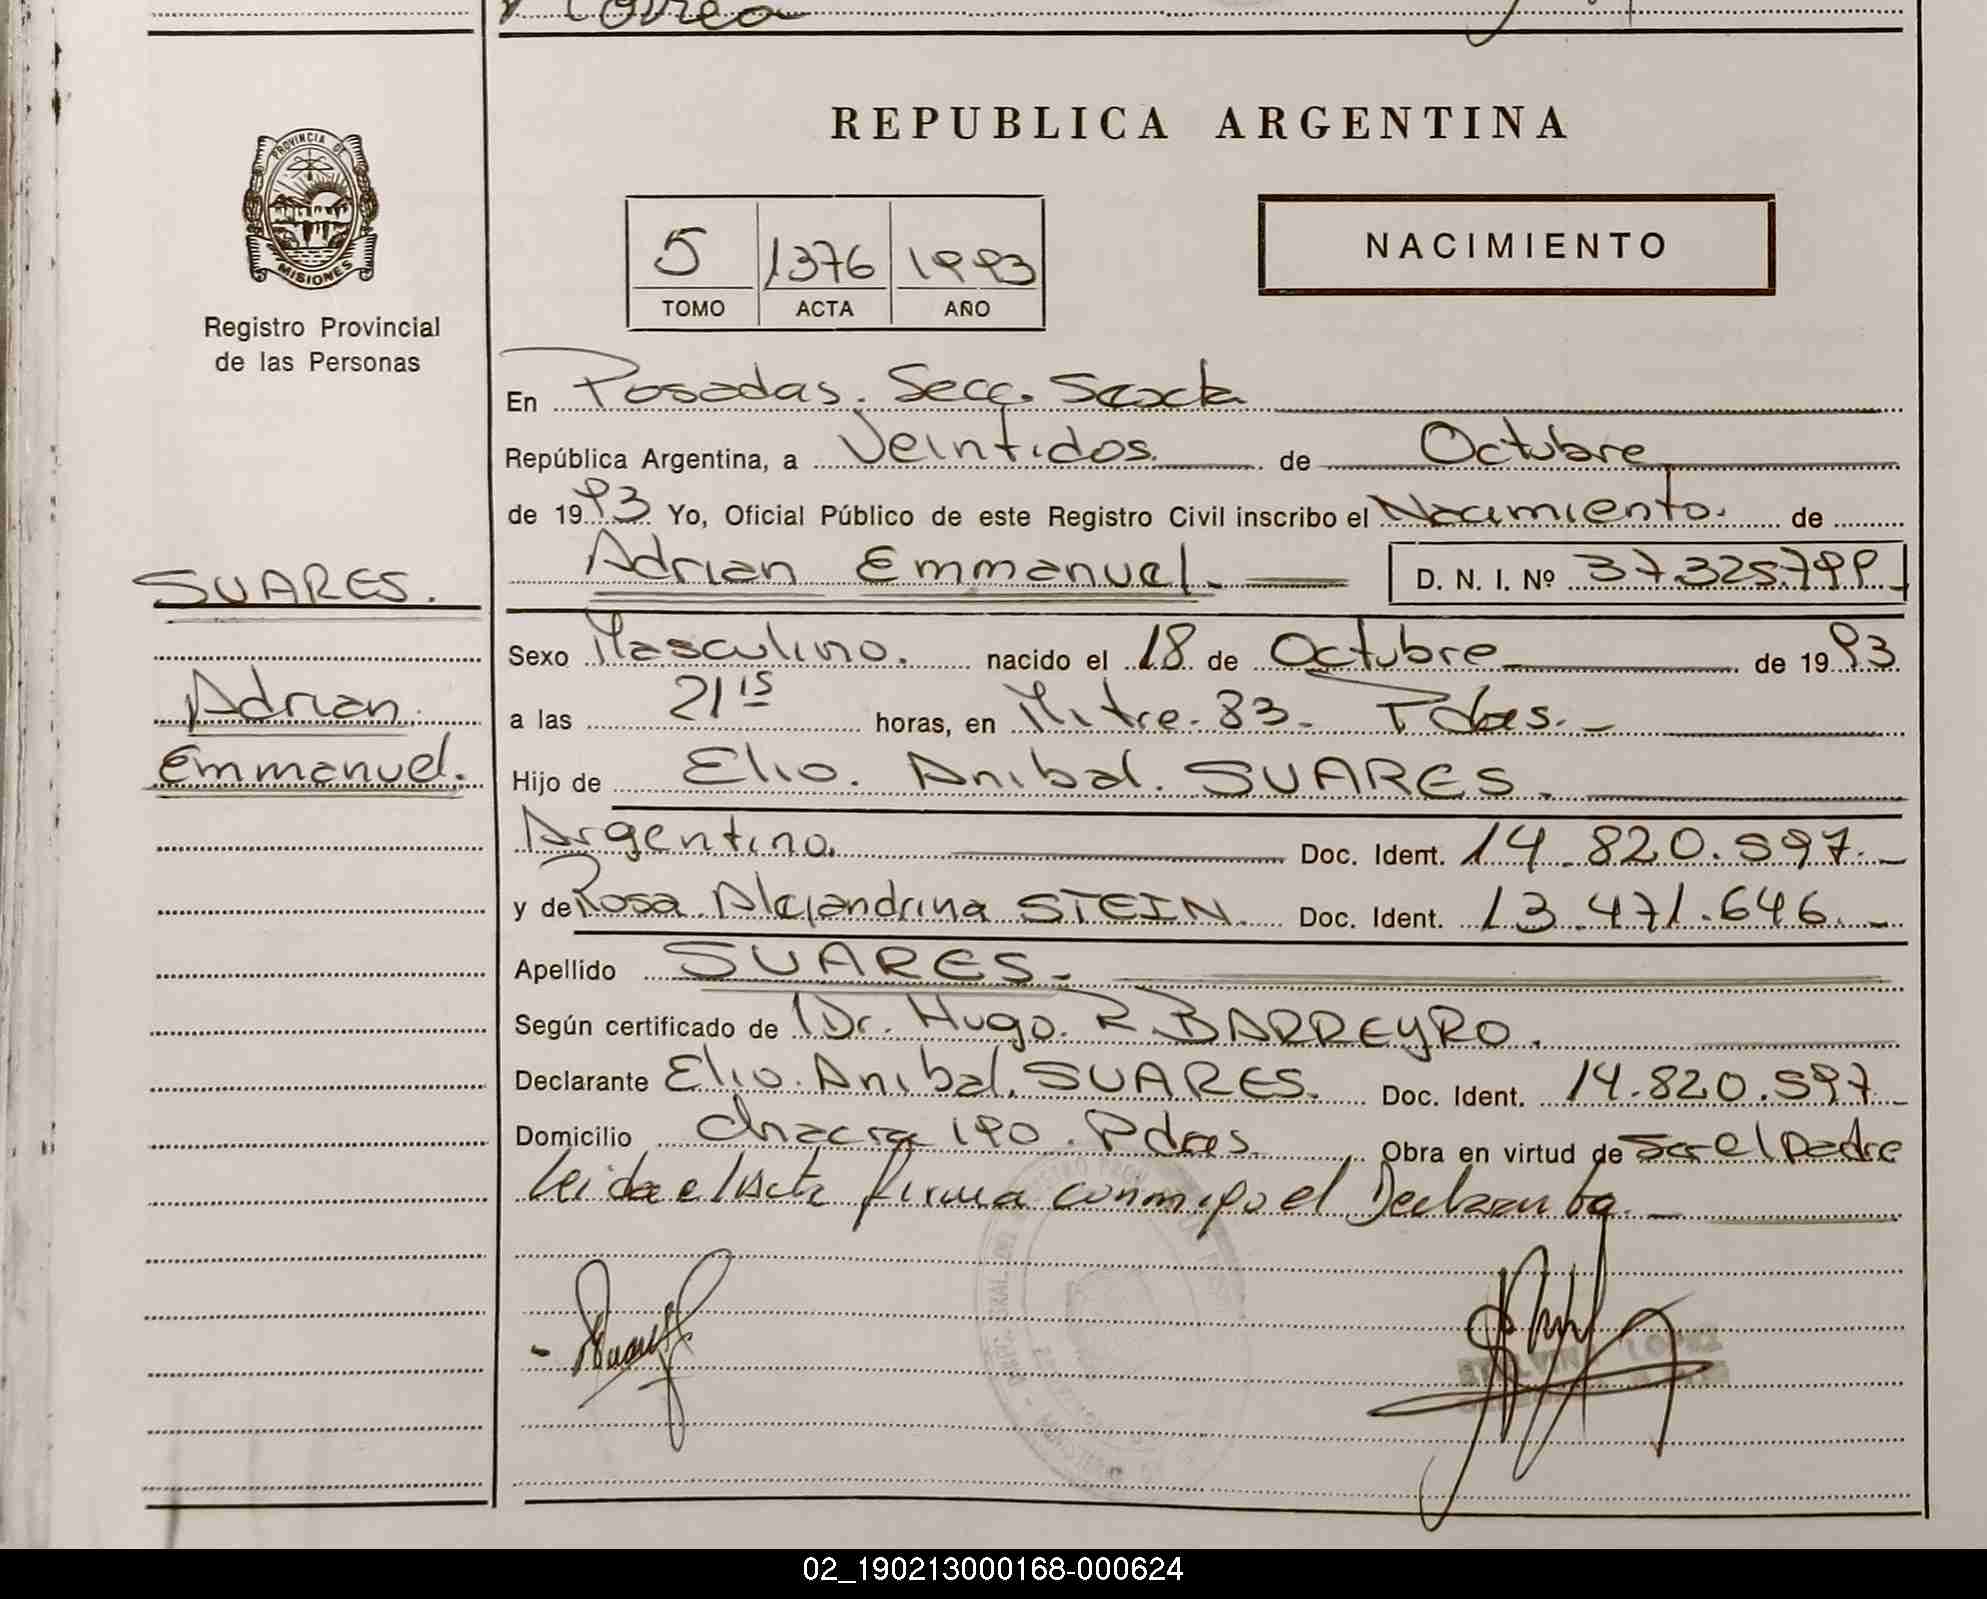 Correa
REPUBLICA ARGENTINA
PROVINCIA DE
MISIONES
Registro Provincial
de las Personas
5 1376 1993
TOMO ACTA AÑO
NACIMIENTO
En Posadas. Secc. Sexta
República Argentina, a Veintidos. de Octubre
de 1993 Yo, Oficial Público de este Registro Civil inscribo el Nacimiento. de
Adrian Emmanuel. D. N. I. Nº 37.325.799
SUARES.
Adrian
Emmanuel.
Sexo Masculino. nacido el 18 de Octubre de 1993
a las 21 15 horas, en Mitre. 83. Pdas.
Hijo de Elio. Anibal. SUARES.
Argentino. Doc. Ident. 14.820.597.
y de Rosa Alejandrina STEIN. Doc. Ident. 13.471.646.
Apellido SUARES.
Según certificado de Dr. Hugo. R. BARREYRO.
Declarante Elio. Anibal. SUARES. Doc. Ident. 14.820.597
Domicilio Chacra 190. Pdas. Obra en virtud de Ser el padre
Leida el Acta firma conmigo el Declarante.
02_190213000168-000624